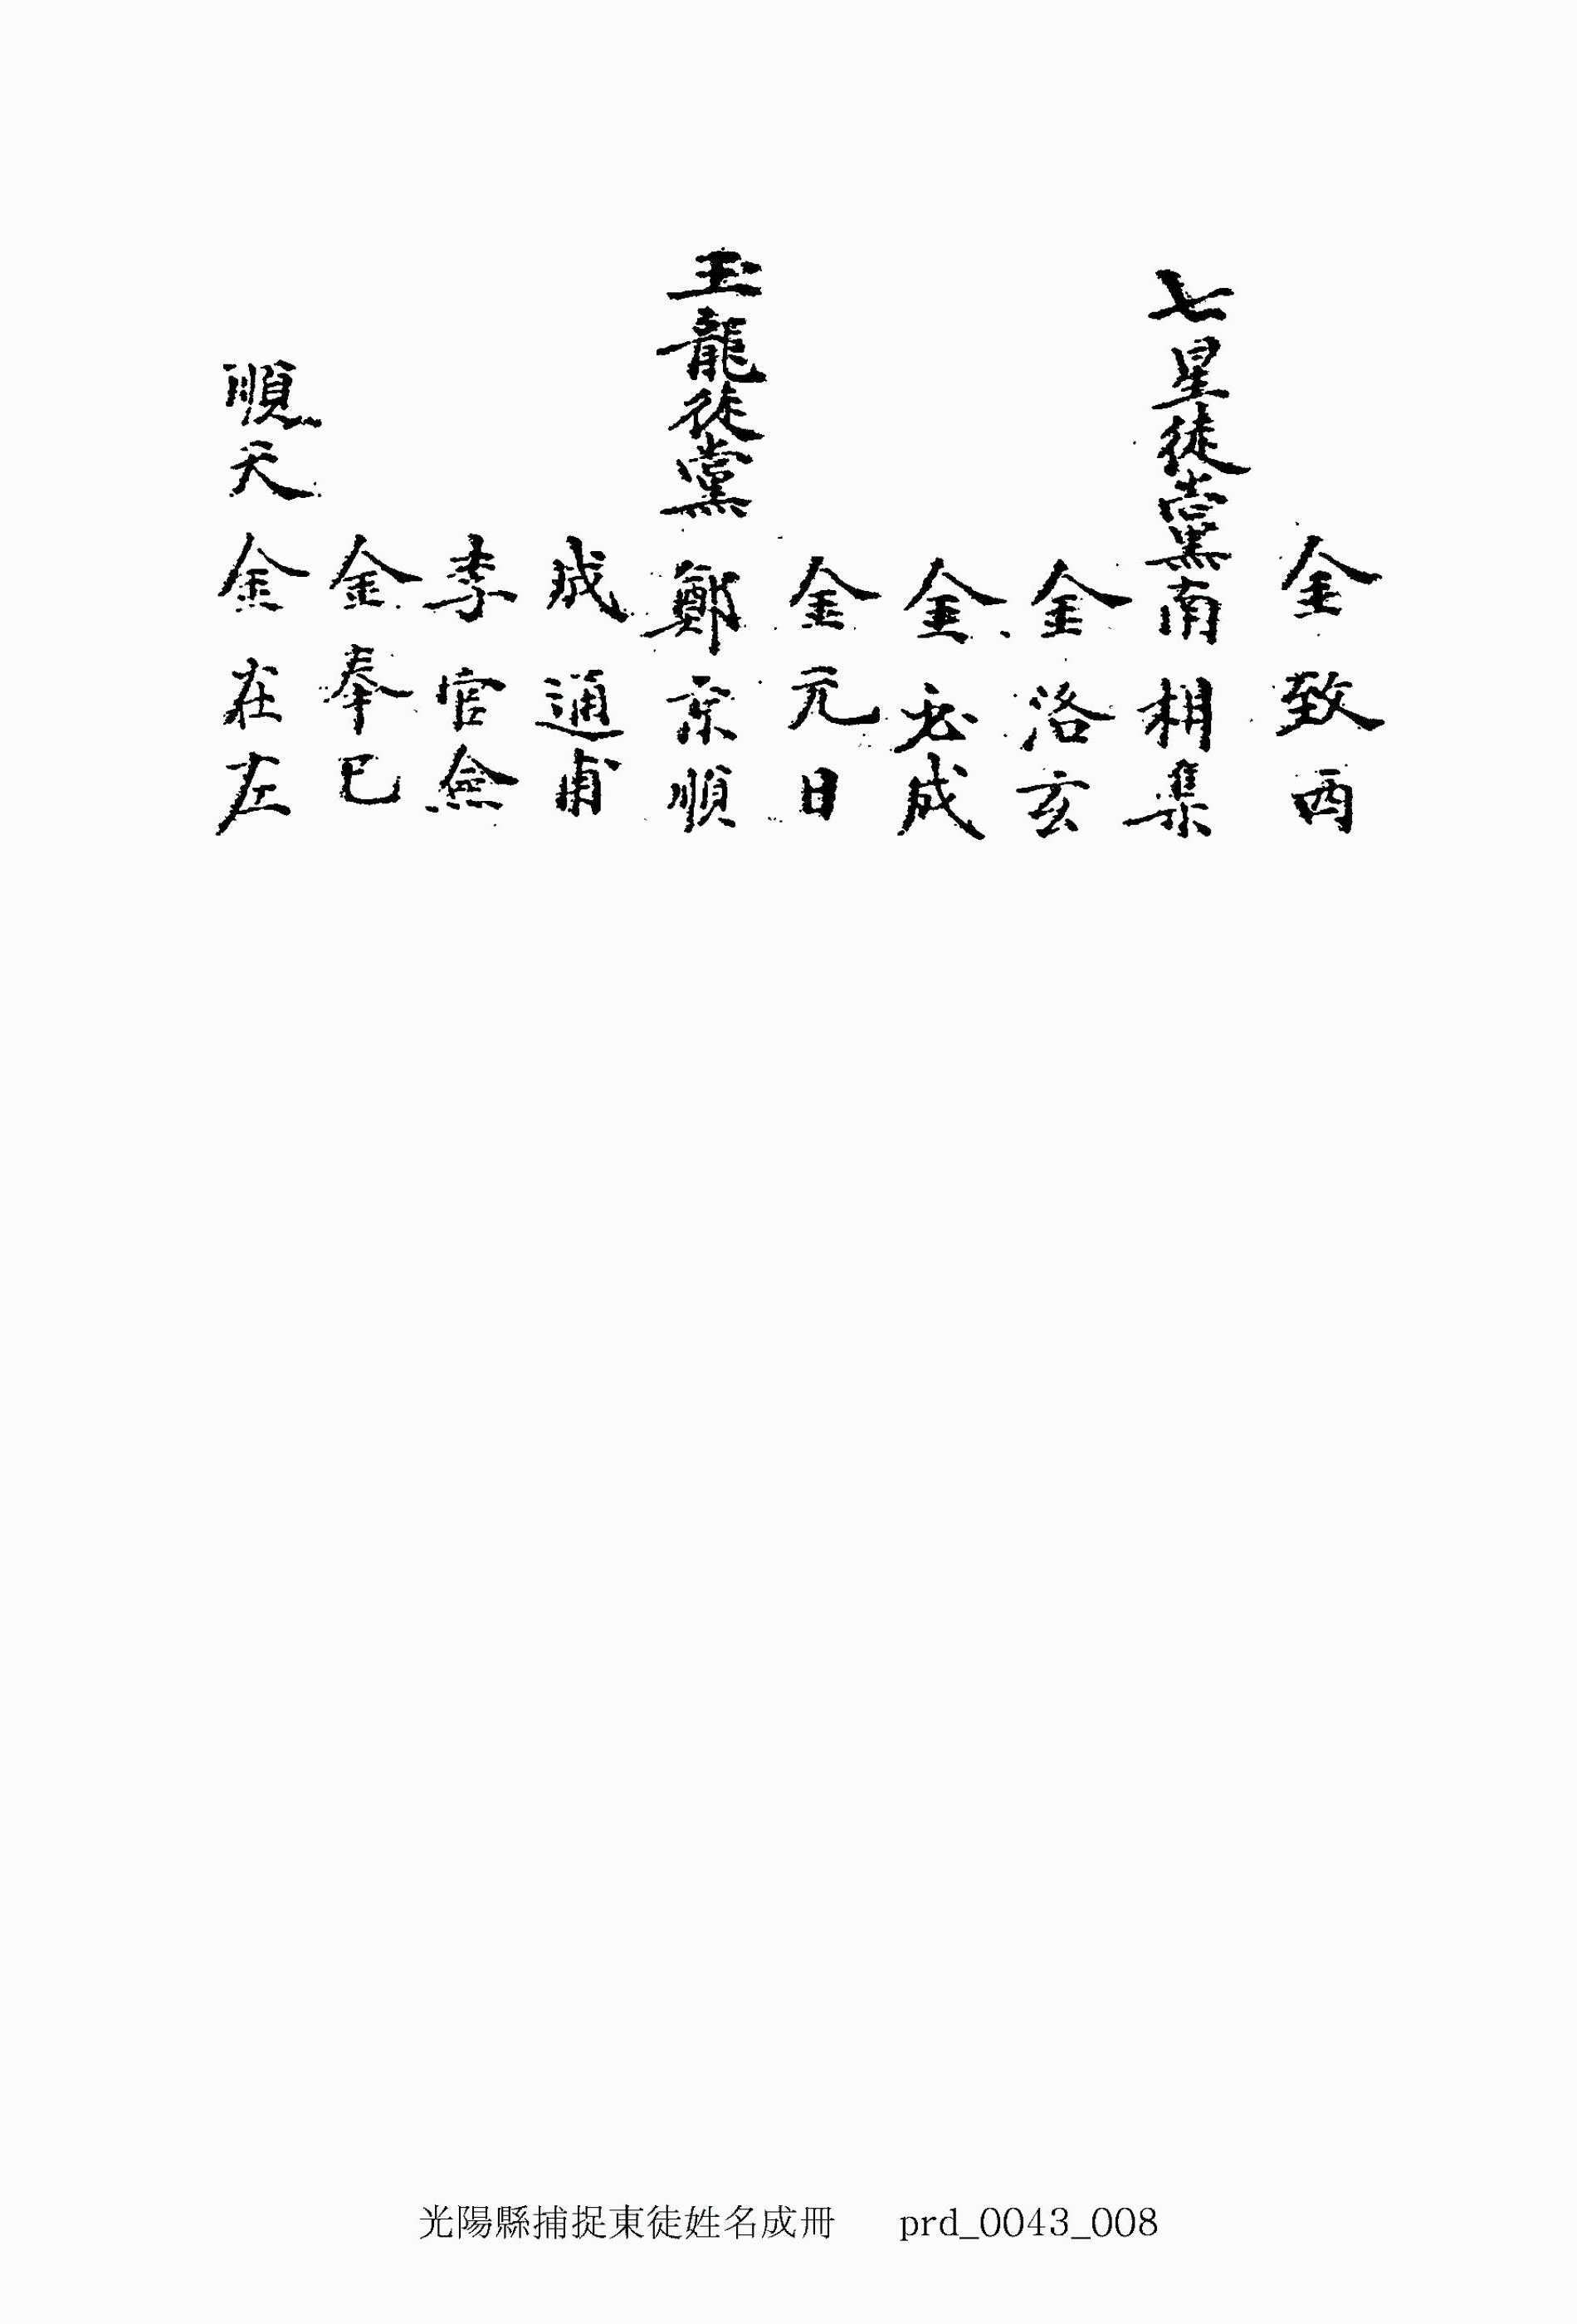 金致酉
七星徒黨南相集
金洛玄
金必成
金元日
玉龍徒黨 鄭京順
成通甫
李官僉
金奉巳
順天 金在左
光陽縣捕捉東徒姓名成冊 prd_0043_008